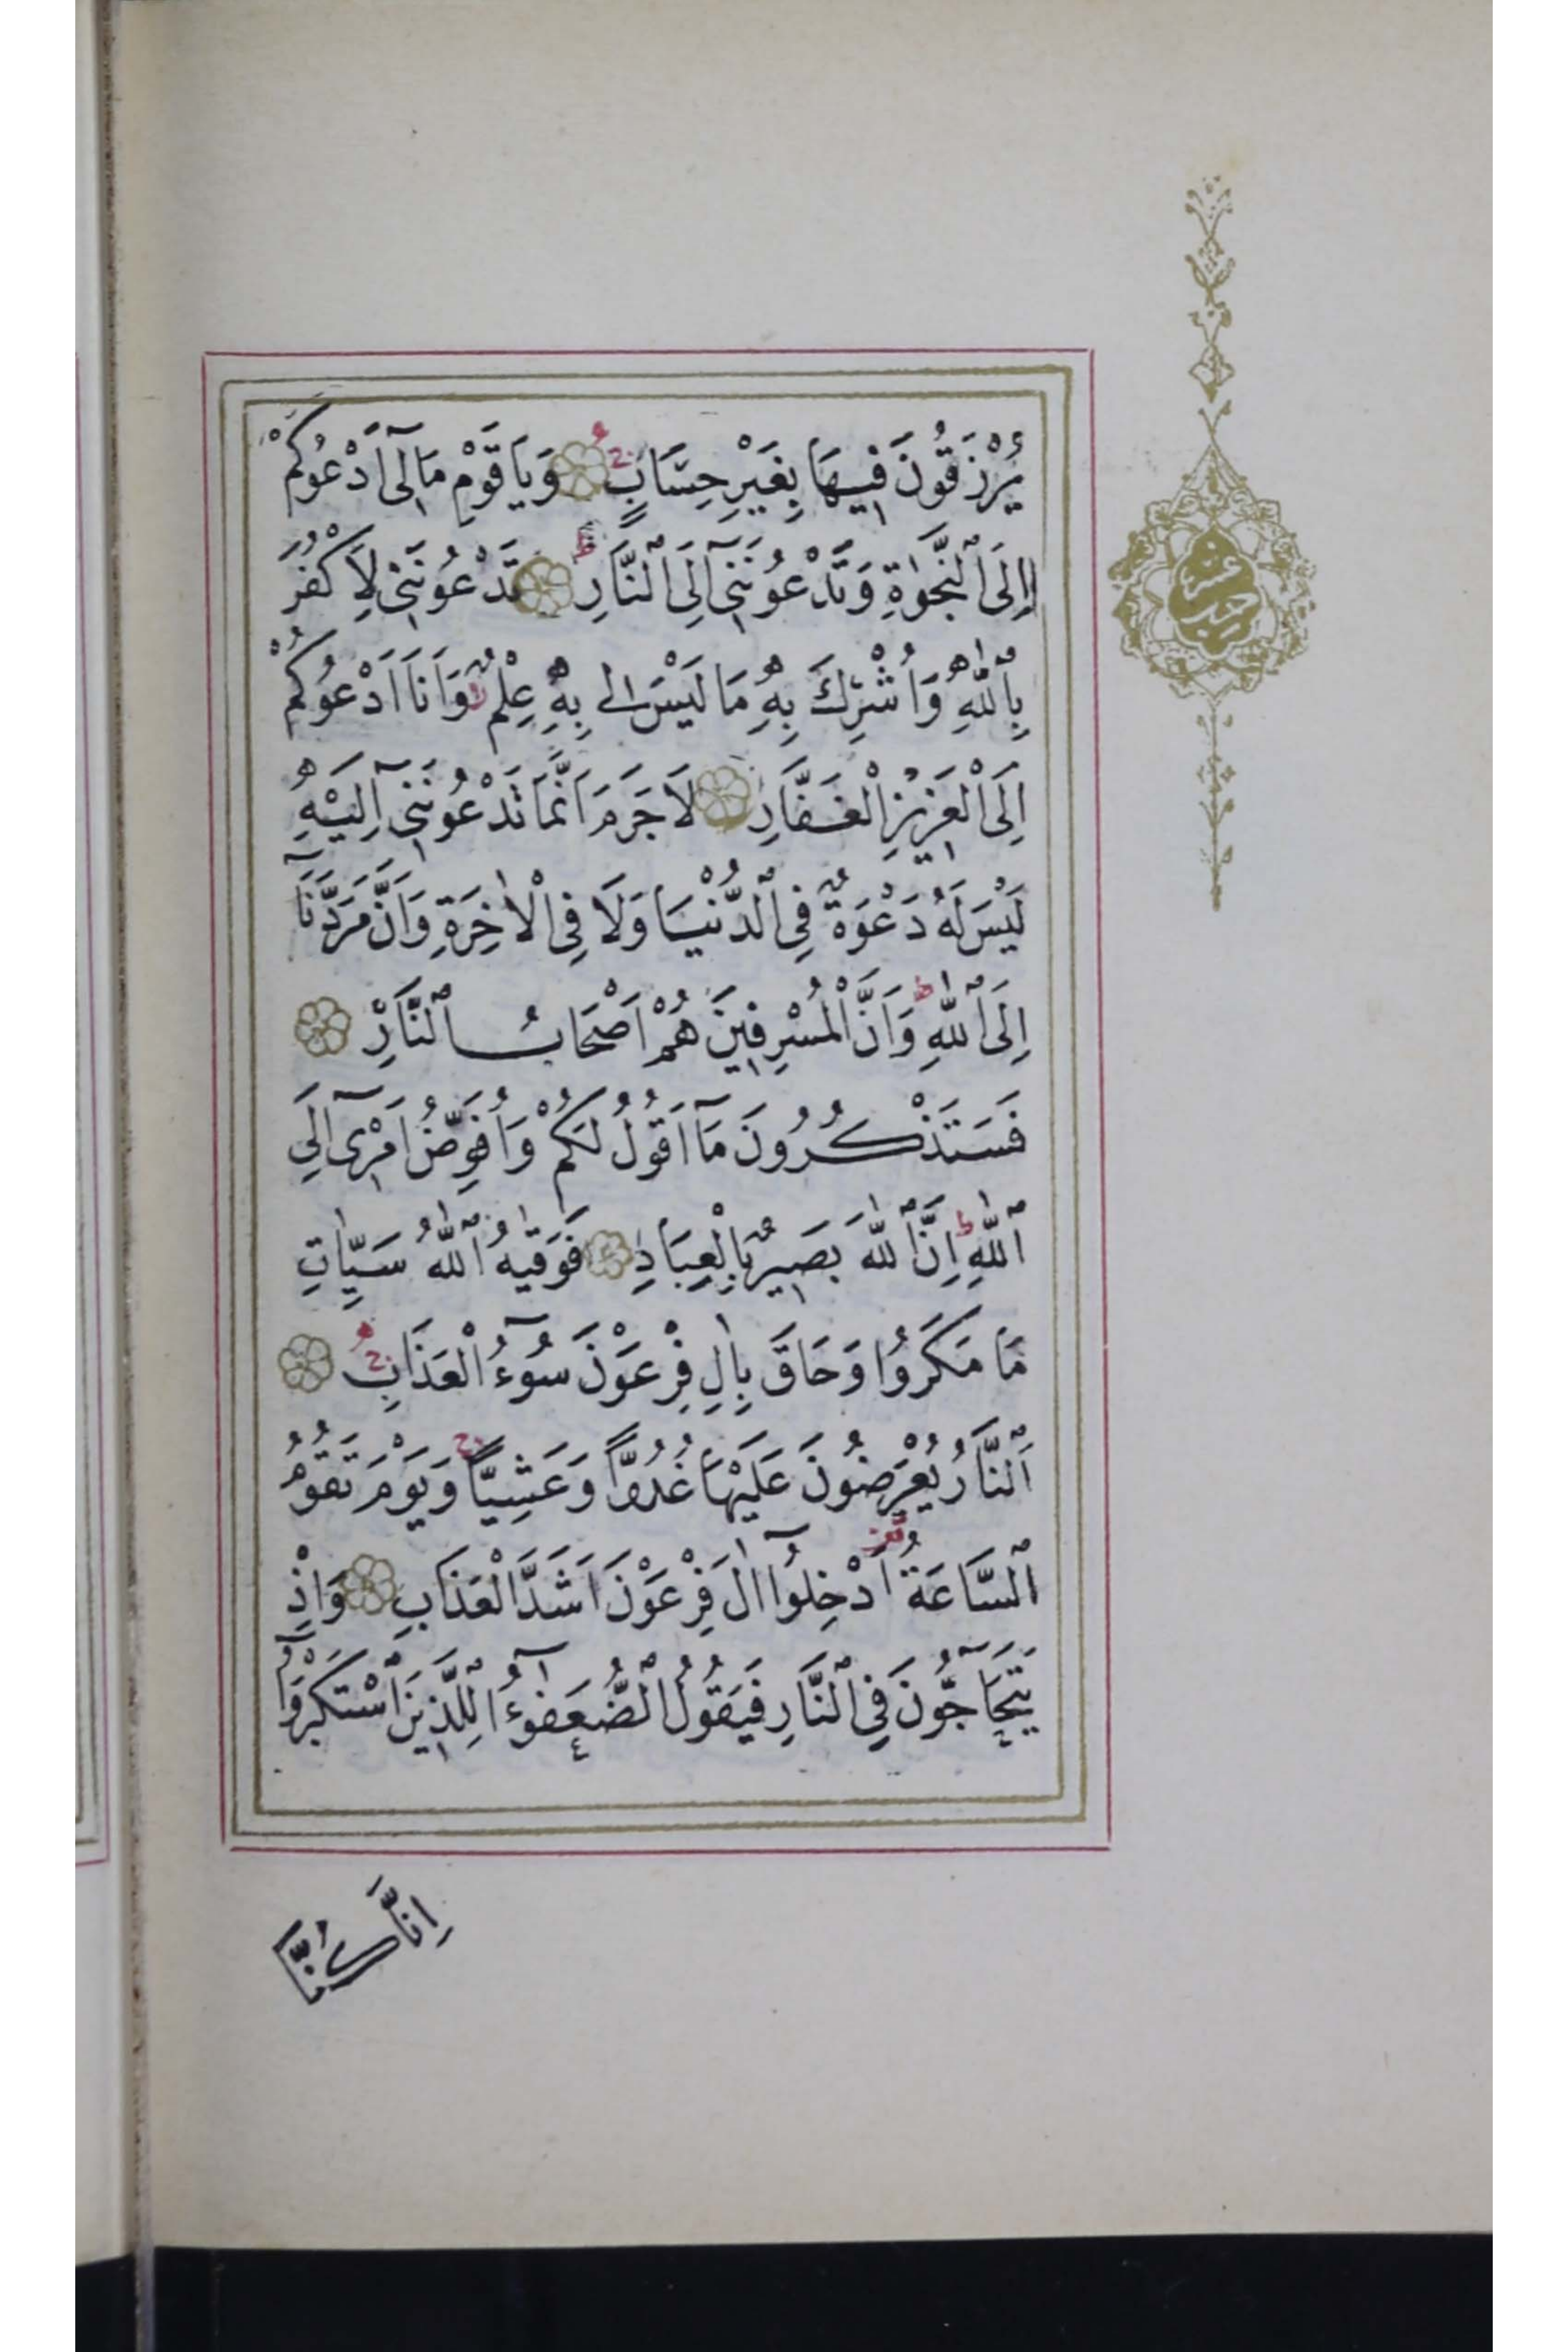 يُرْزَقُونَ فِيهَا بِغَيْرِ حِسَابٍ وَيَا قَوْمِ مَا لِى اَدْعُوكُمْ
اِلَى ٱلنَّجٰوةِ وَتَدْعُونَنِىٓ اِلَى ٱلنَّارِ تَدْعُونَنِى لِاَكْفُرَ
بِٱللّٰهِ وَاُشْرِكَ بِهِ مَا لَيْسَ لِى بِهِ عِلْمٌ وَاَنَا اَدْعُوكُمْ
اِلَى الْعَزِيزِ الْغَفَّارِ لَا جَرَمَ اَنَّمَا تَدْعُونَنِىٓ اِلَيْهِ
لَيْسَ لَهُ دَعْوَةٌ فِى ٱلدُّنْيَا وَلَا فِى الْاٰخِرَةِ وَاَنَّ مَرَدَّنَآ
اِلَى ٱللّٰهِ وَاَنَّ الْمُسْرِفِينَ هُمْ اَصْحَابُ ٱلنَّارِ
فَسَتَذْكُرُونَ مَآ اَقُولُ لَكُمْ وَاُفَوِّضُ اَمْرِىٓ اِلَى
ٱللّٰهِ اِنَّ ٱللّٰهَ بَصِيرٌ بِالْعِبَادِ فَوَقٰيهُ ٱللّٰهُ سَيِّاٰتِ
مَا مَكَرُوا وَحَاقَ بِاٰلِ فِرْعَوْنَ سُوٓءُ الْعَذَابِ
اَلنَّارُ يُعْرَضُونَ عَلَيْهَا غُدُوًّا وَعَشِيًّا وَيَوْمَ تَقُومُ
ٱلسَّاعَةُ اَدْخِلُوٓا اٰلَ فِرْعَوْنَ اَشَدَّ الْعَذَابِ وَاِذْ
يَتَحَآجُّونَ فِى ٱلنَّارِ فَيَقُولُ ٱلضُّعَفٰٓؤُا لِلَّذِينَ ٱسْتَكْبَرُوٓا
اِنَّا كُنَّا